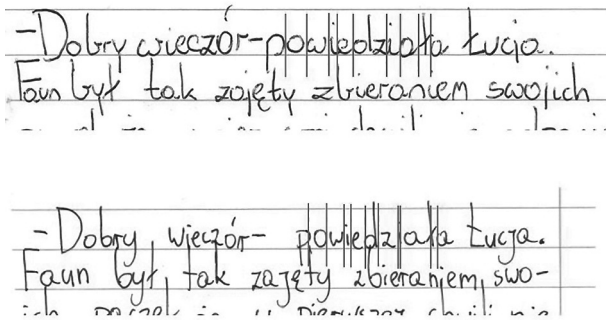 -Dobry wieczór-powiedziała Łucja.
Faun był tak zajęty zbieraniem swoich
-Dobry, wieczór- powiedziała Łucja.
Faun był, tak zajęty zbieraniem, swo-